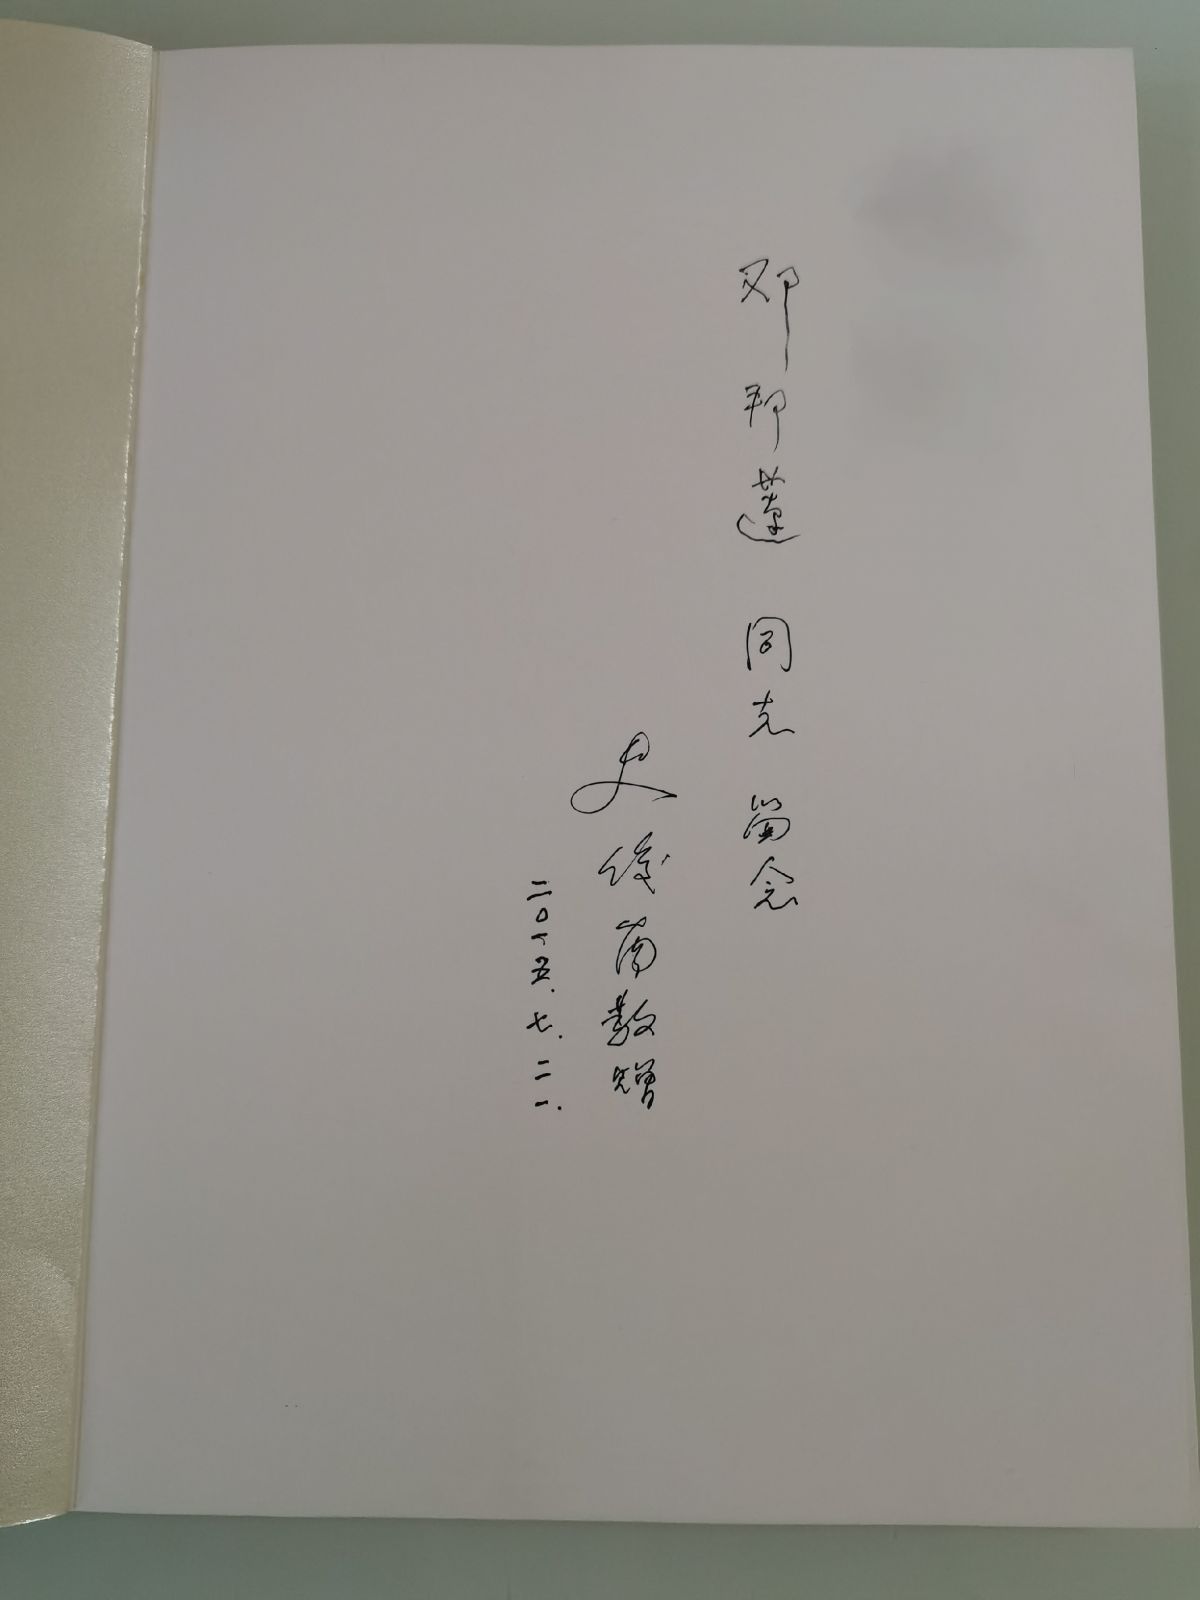 邓邦莲 同志 留念
史俊南敬赠
二〇一五.七.二一.